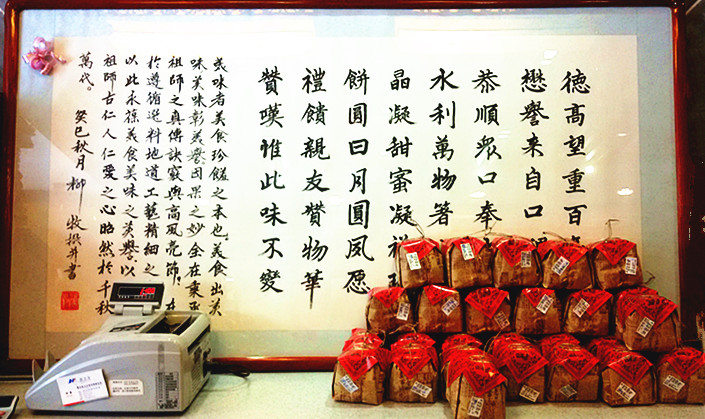 德高望重百
懋譽来自口
恭順眾口奉
水利萬物著
晶凝甜蜜凝祥
餅圓日月圓夙愿
禮饋親友贊物華
贊嘆惟此味不變
美味者美食珍饈之本也。美食出美
味美味彰美譽因果之妙全在秉承
祖師之真傳訣竅與高風亮節。在
於遵循選料地道工藝精細之
以此永葆美食美味之美譽以
祖師古仁人仁愛之心昭然於千秋
萬代。
癸巳秋月柳牧撰并書